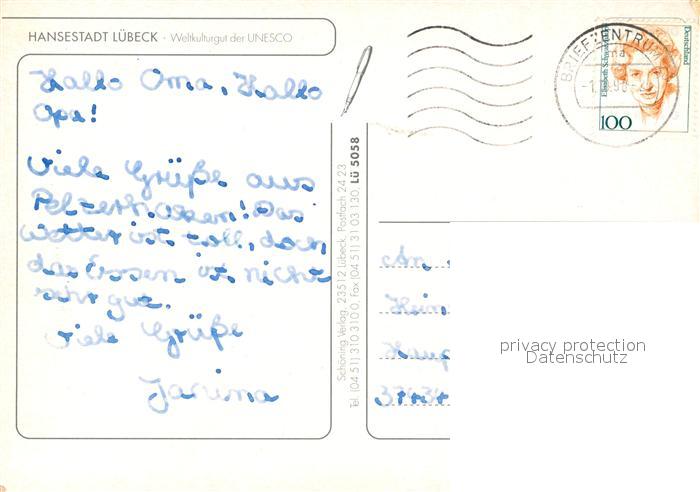 HANSESTADT LÜBECK · Weltkulturgut der UNESCO
Hallo Oma, Hallo
Opa!
Viele Grüße aus
Pelzerhaken! Das
Wetter ist toll, doch
das Essen ist nicht
sehr gut.
Viele Grüße
Janina
Schöning Verlag, 23512 Lübeck, Postfach 24 23
Tel. (04 51) 310 310 0, Fax (04 51) 31 03 130, Lü 5058
BRIEFZENTRUM
Deutschland
100
An
privacy protection
Datenschutz